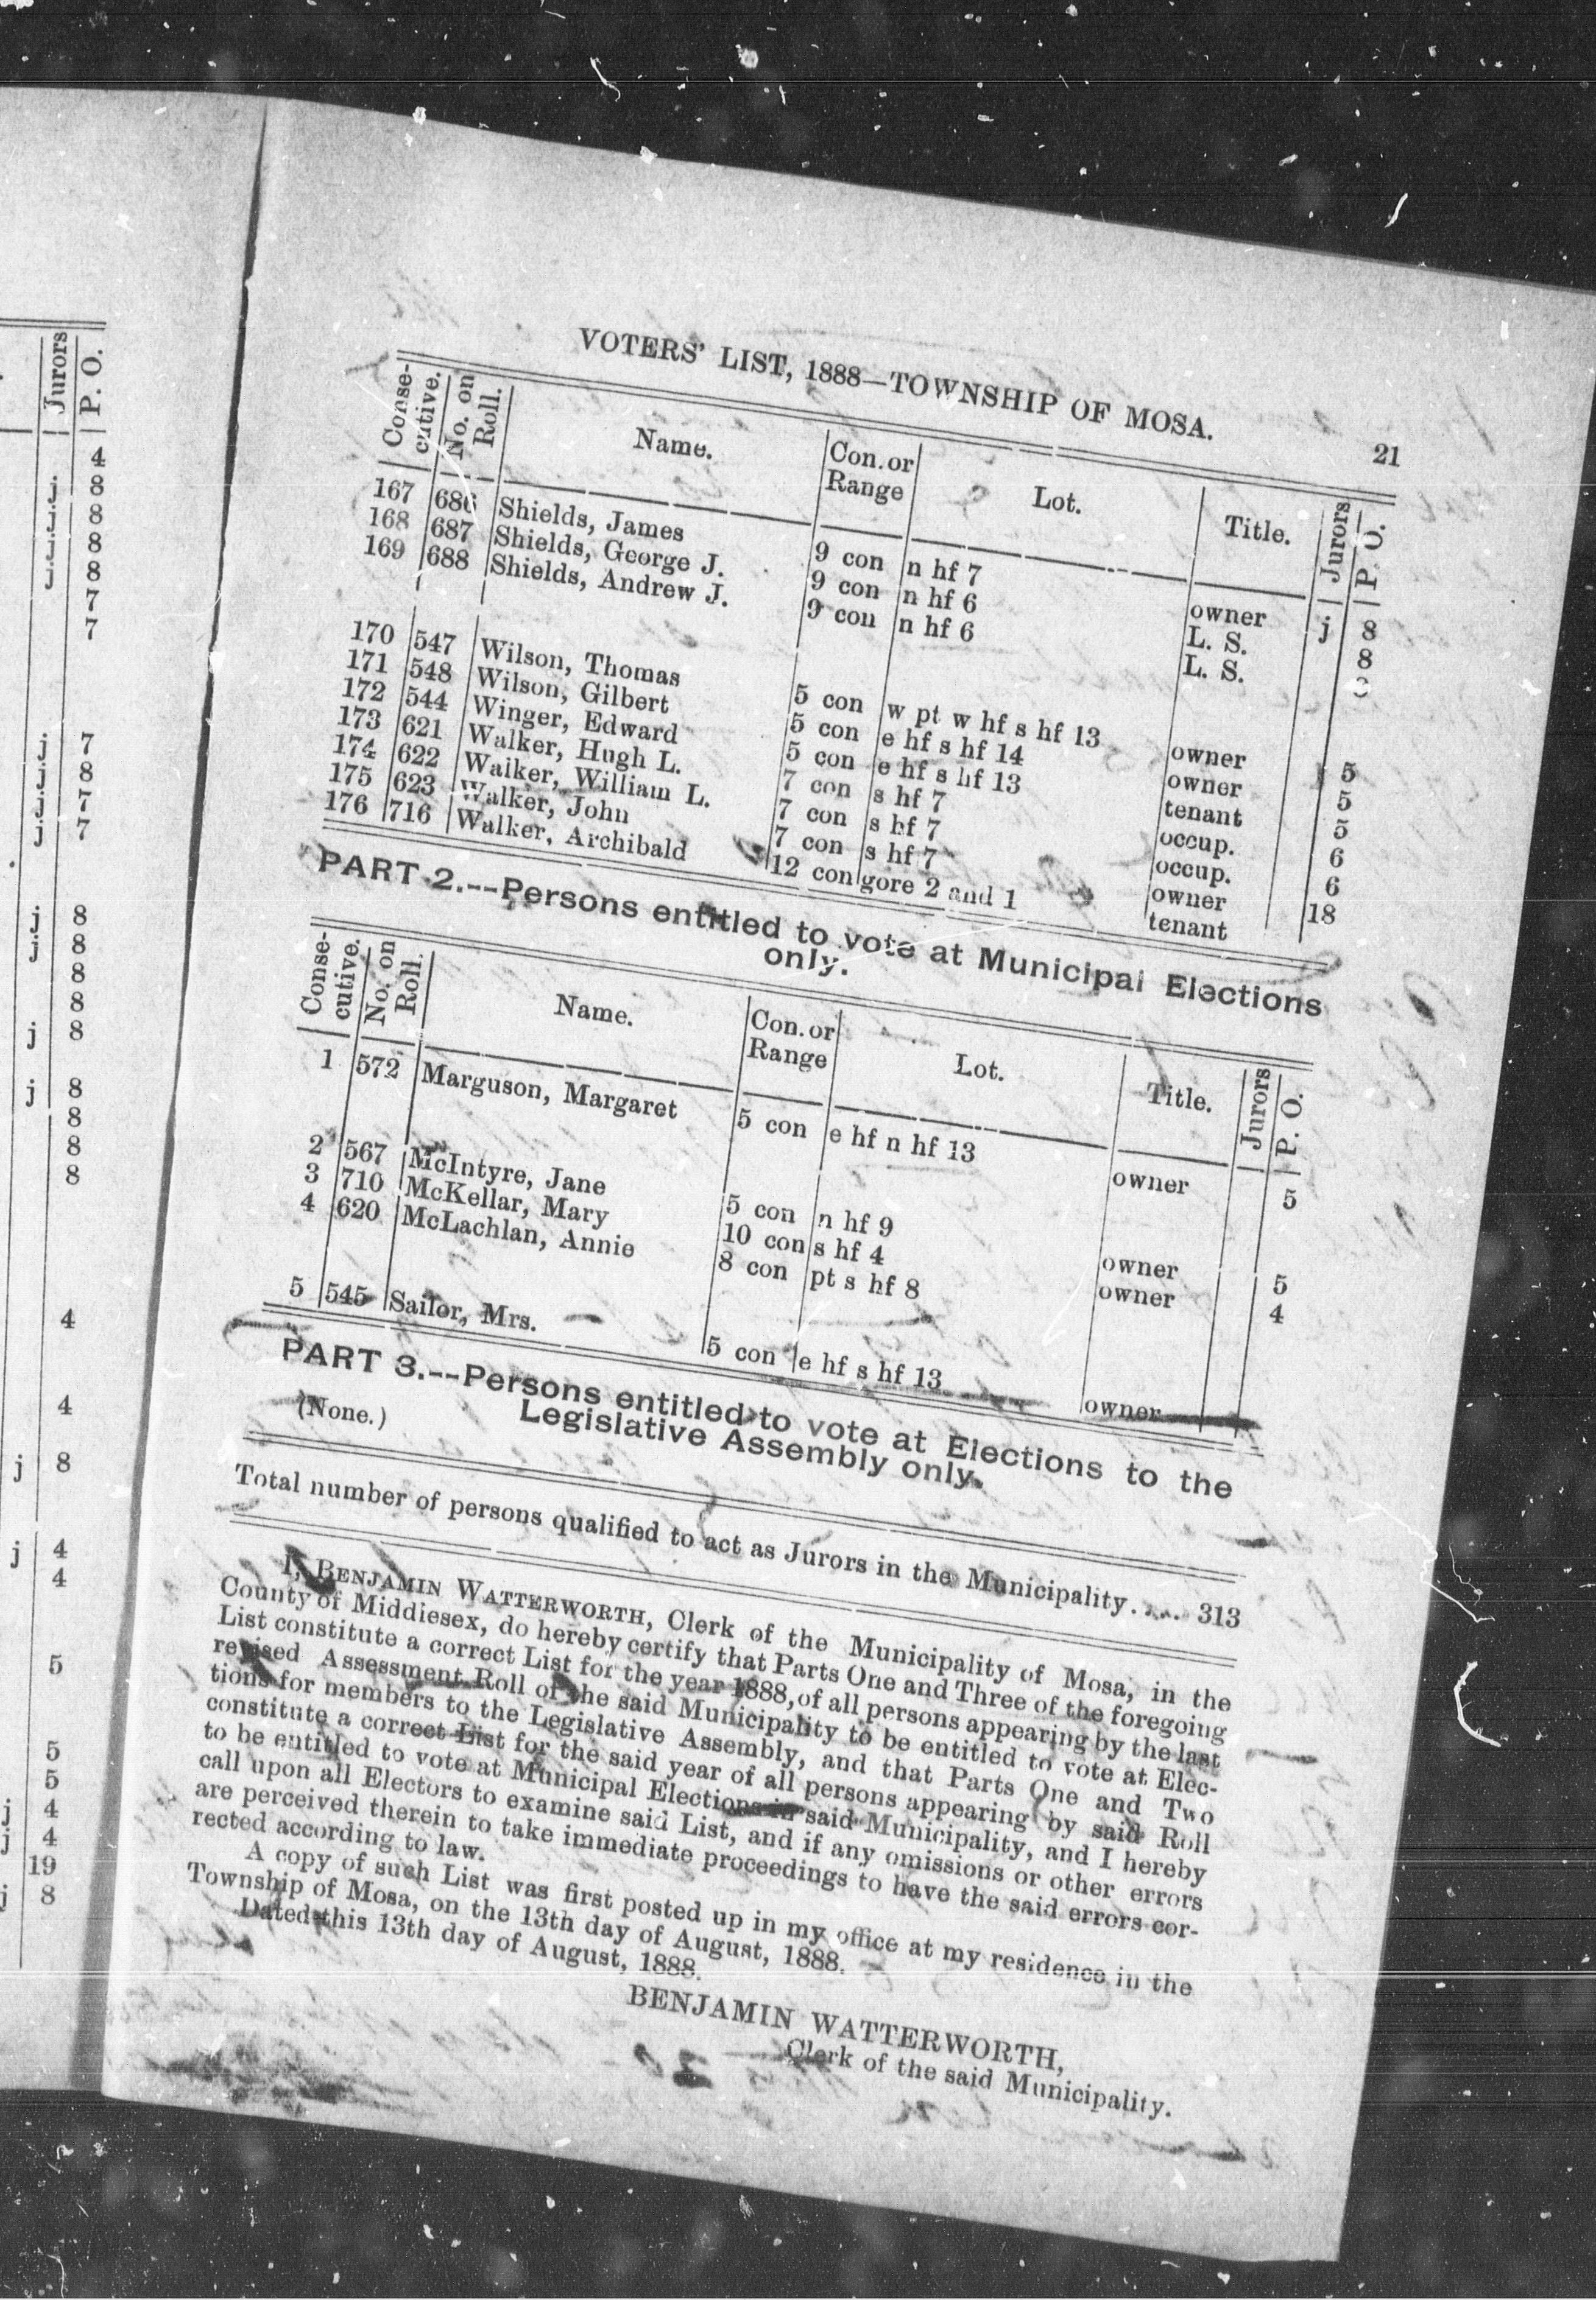 Jurors P. O.
4
j. 8
j. 8
j. 8
j. 8
7
7
j. 7
j. 8
j. 7
j. 7
j. 8
j. 8
8
8
j. 8
j 8
8
8
8
4
4
j 8
j 4
4
5
5
5
j. 4
j 4
19
j 8
VOTERS' LIST, 1888—TOWNSHIP OF MOSA. 21
Conse-cutive. No. on Roll. Name. Con. or Range Lot. Title. Jurors P. O.
167 686 Shields, James 9 con n hf 7 owner j 8
168 687 Shields, George J. 9 con n hf 6 L. S. 8
169 688 Shields, Andrew J. 9 con n hf 6 L. S.
170 547 Wilson, Thomas 5 con w pt w hf s hf 13 owner 5
171 548 Wilson, Gilbert 5 con e hf s hf 14 owner 5
172 544 Winger, Edward 5 con e hf s hf 13 tenant 5
173 621 Walker, Hugh L. 7 con s hf 7 occup. 6
174 622 Waiker, William L. 7 con s hf 7 occup. 6
175 623 Walker, John 7 con s hf 7 owner 18
176 716 Walker, Archibald 12 con gore 2 and 1 tenant
PART 2.--Persons entitled to vote at Municipal Elections
only.
Conse-cutive. No. on Roll. Name. Con. or Range Lot. Title. Jurors P. O.
1 572 Marguson, Margaret 5 con e hf n hf 13 owner 5
2 567 McIntyre, Jane 5 con n hf 9 owner 5
3 710 McKellar, Mary 10 con s hf 4 owner 4
4 620 McLachlan, Annie 8 con pt s hf 8
5 545 Sailor, Mrs. 5 con e hf s hf 13 owner
PART 3.--Persons entitled to vote at Elections to the
Legislative Assembly only.
(None.)
Total number of persons qualified to act as Jurors in the Municipality.... 313
I, BENJAMIN WATTERWORTH, Clerk of the Municipality of Mosa, in the
County of Middlesex, do hereby certify that Parts One and Three of the foregoing
List constitute a correct List for the year 1888, of all persons appearing by the last
revised Assessment Roll of the said Municipality to be entitled to vote at Elec-
tions for members to the Legislative Assembly, and that Parts One and Two
constitute a correct List for the said year of all persons appearing by said Roll
to be entitled to vote at Municipal Elections in said Municipality, and I hereby
call upon all Electors to examine said List, and if any omissions or other errors
are perceived therein to take immediate proceedings to have the said errors cor-
rected according to law.
A copy of such List was first posted up in my office at my residence in the
Township of Mosa, on the 13th day of August, 1888.
Dated this 13th day of August, 1888.
BENJAMIN WATTERWORTH,
Clerk of the said Municipality.